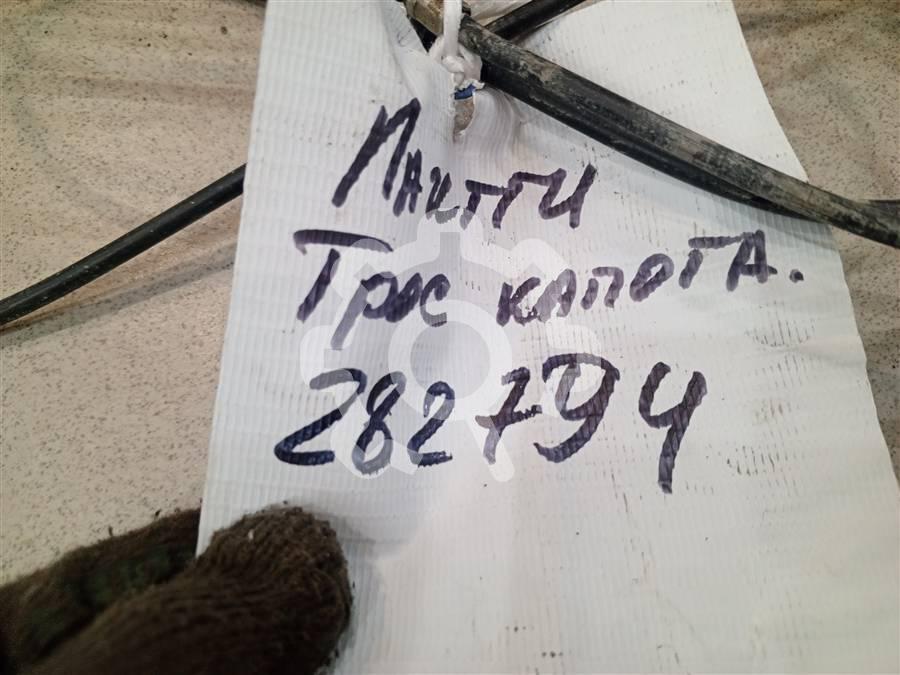 Пантги
Трос капота.
282794